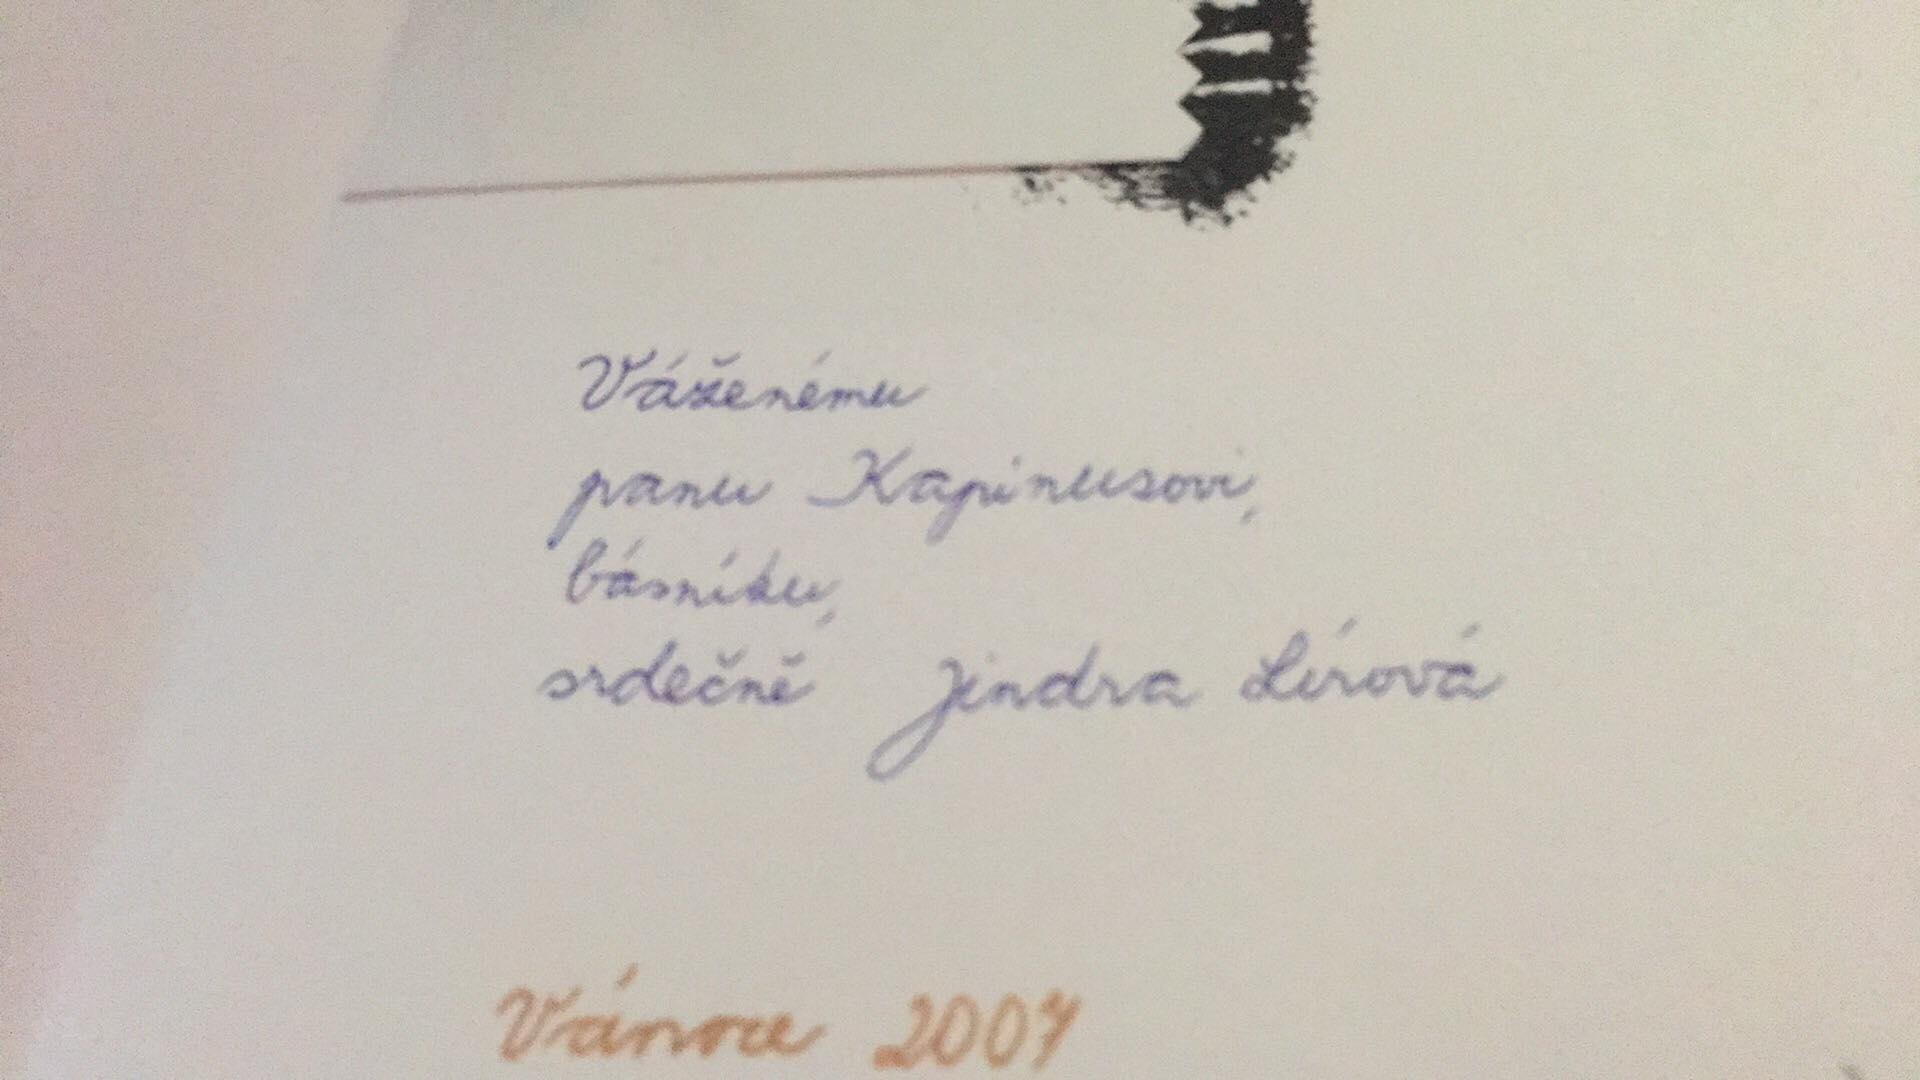 Váženému
panu Kapinusovi,
básníku,
srdečně Jindra Lírová
Vánoce 2004